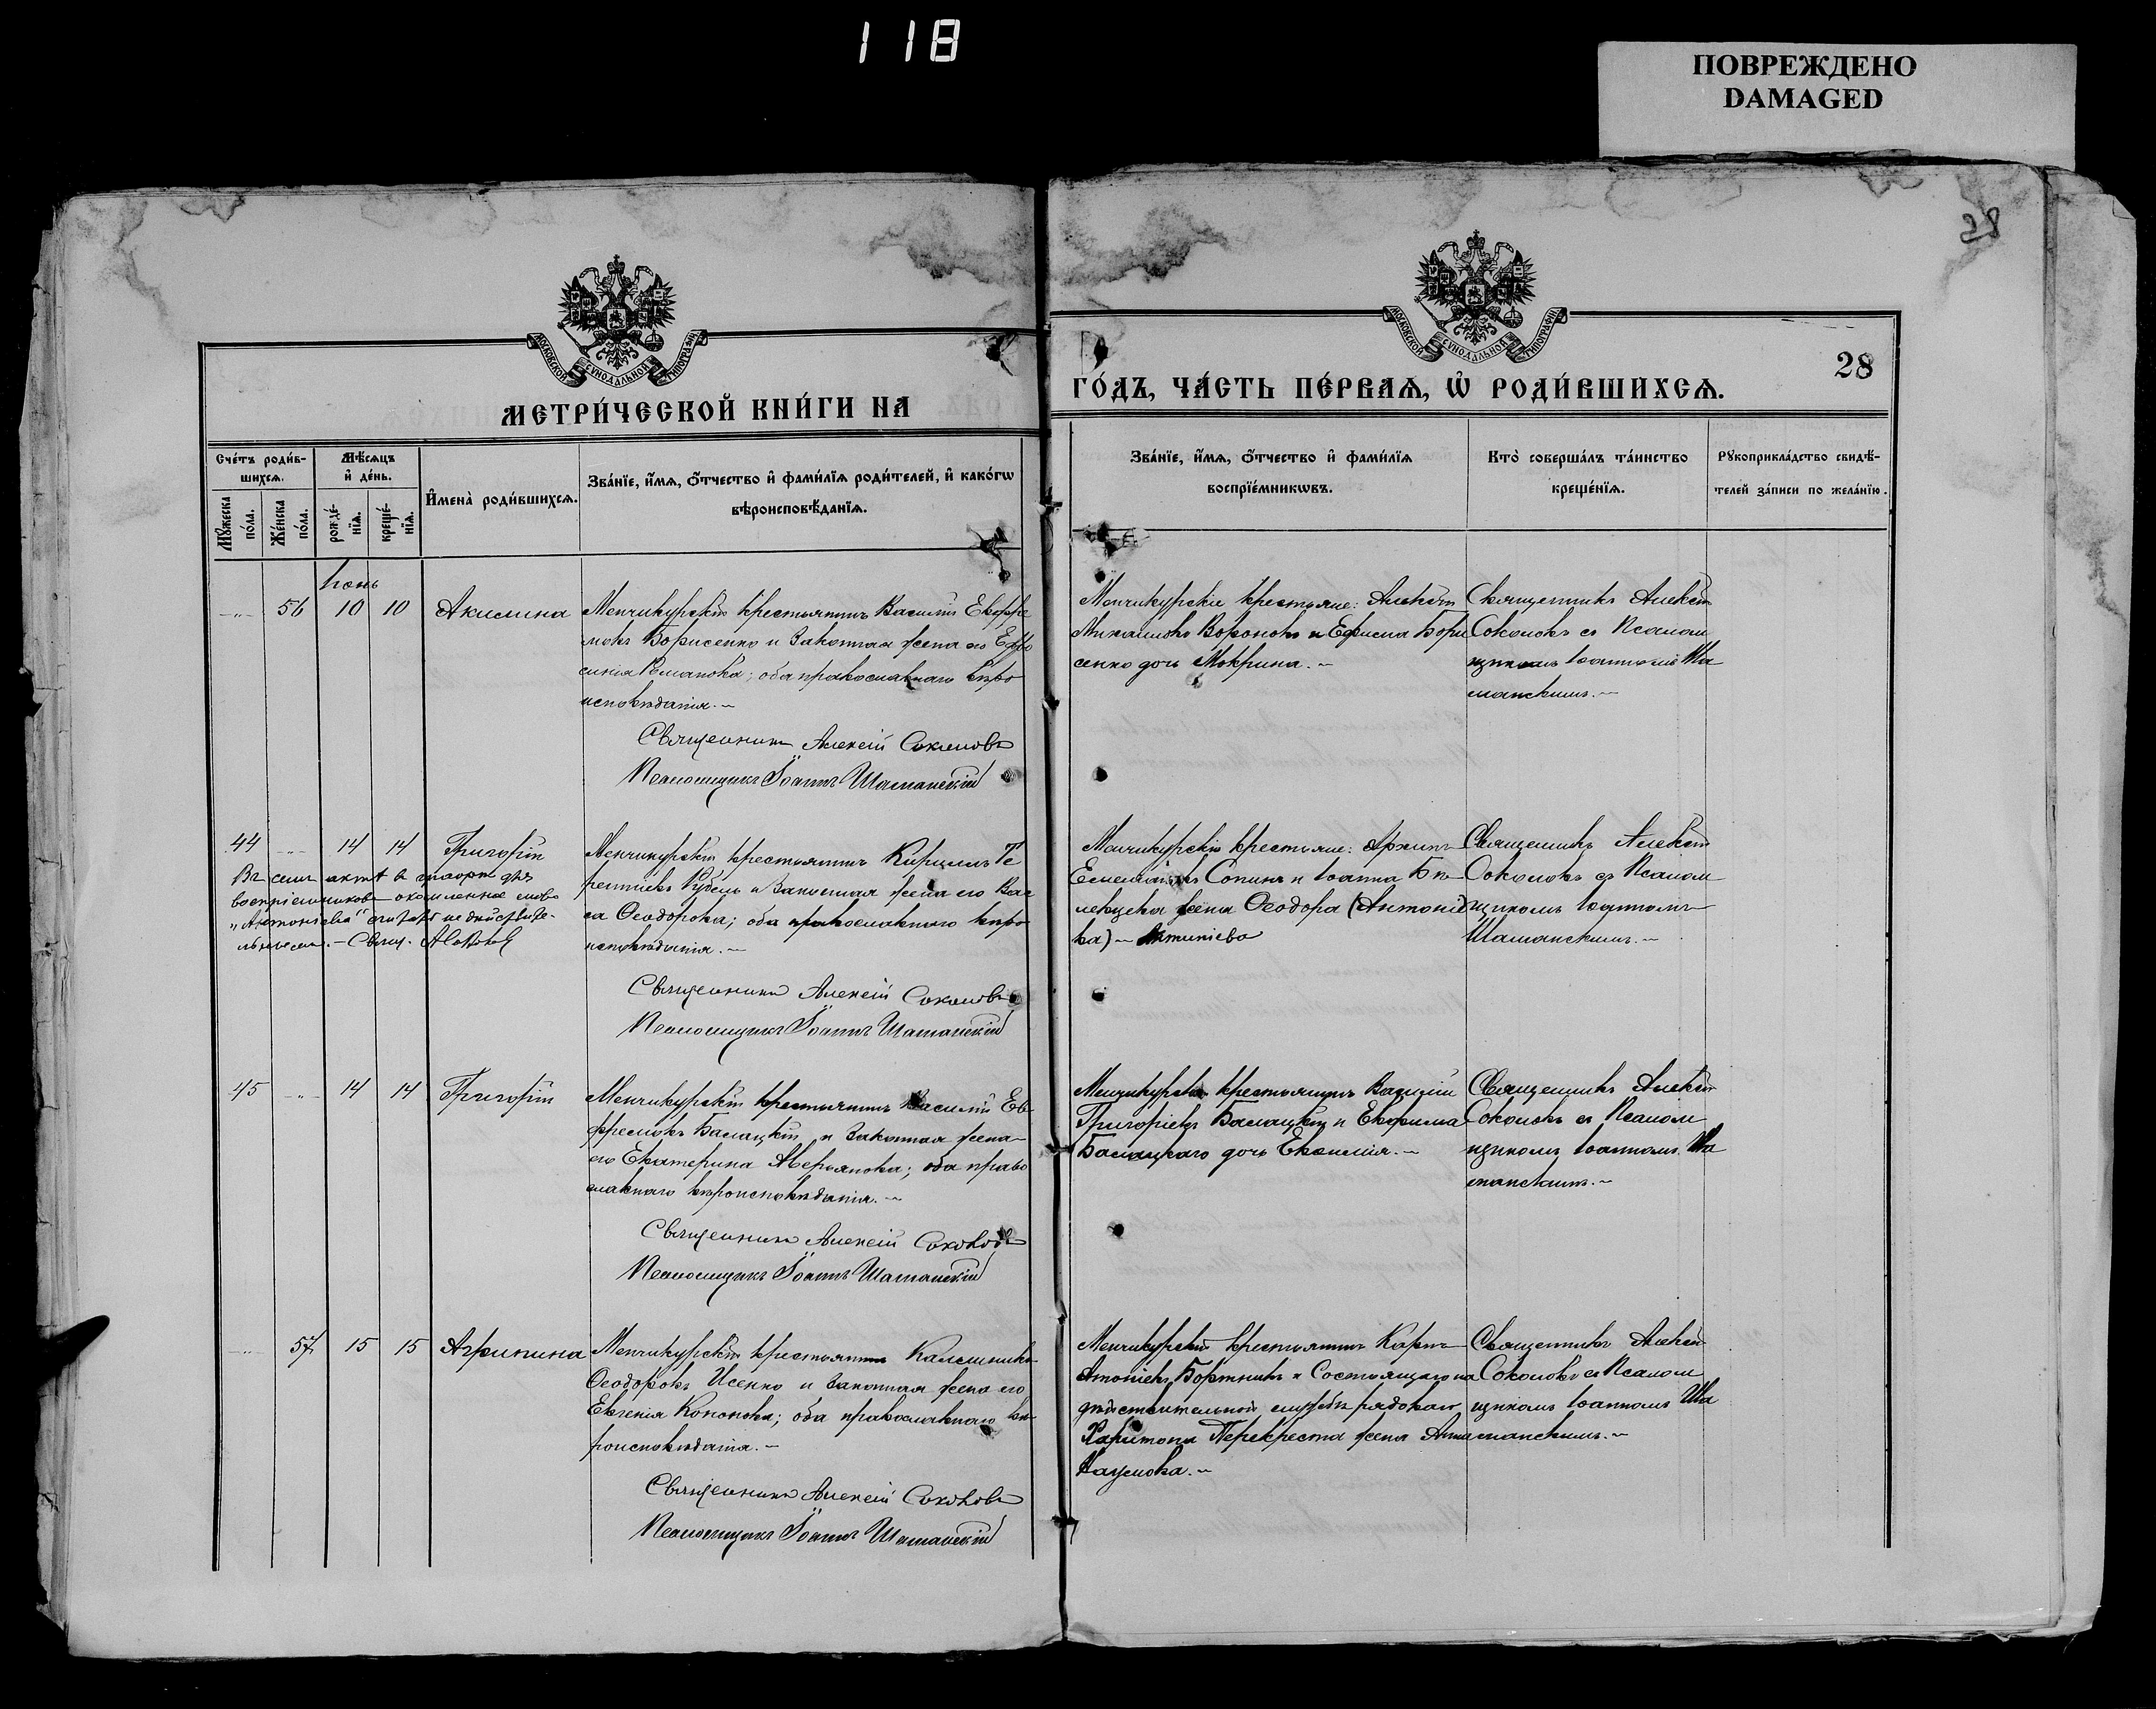 118
ПОВРЕЖДЕНО
DAMAGED
28
МОСКОВСКОЙ СѴНОДАЛЬНОЙ ТИПОГРАФІИ
МОСКОВСКОЙ СѴНОДАЛЬНОЙ ТИПОГРАФІИ
28
МЕТРИ́ЧЕСКОЙ КНИ́ГИ НА
ГО́ДЪ, ЧА́СТЬ ПЕ́РВАѦ, Ѡ РОДИ́ВШИХСѦ.
Сче́тъ роди́в-
шихсѧ.
Мꙋ́жеска по́ла.
Же́нска по́ла.
Мѣ́сѧцъ
и҆ де́нь.
рожде́-
нїѧ.
креще́-
нїѧ.
И҆мена̀ роди́вшихсѧ.
Зва́нїе, и҆́мѧ, ѻ҆́тчество и҆ фами́лїѧ роди́телей, и҆ како́гѡ
вѣроисповѣ́данїѧ.
Зва́нїе, и҆́мѧ, ѻ҆́тчество и҆ фами́лїѧ
воспрїе́мникѡвъ.
Кто̀ соверша́лъ та́инство
креще́нїѧ.
Рꙋкоприкла́дство свидѣ́-
телей за́писи по жела́нїю.
Іюнь
56 10 10 Акилина
Менчикурскій крестьянинъ Василій Евфре
мовъ Борисенко и законная жена его Евфро
синія Романова; оба православнаго вѣро
исповѣданія.
Священникъ Алексій Соколовъ
Псаломщикъ Іоаннъ Шаманскій
Менчикурскіе крестьяне: Алексѣй
Михаиловъ Вороновъ и Ефрема Бори
сенко дочь Мокрина.
Священникъ Алексій
Соколовъ съ Псалом
щикомъ Іоанномъ Ша
манскимъ.
44 14 14 Григорій
Въ семъ актѣ въ графѣ для
воспріемниковъ окаймленное слово
"Антоніева" считать недѣйствите-
льнымъ. - Свящ. А Соколовъ
Менчикурскій крестьянинъ Кириллъ Те
рентіевъ Кубель и законная жена его Вас
са Ѳеодорова; оба православнаго вѣро
исповѣданія.
Священникъ Алексій Соколовъ
Псаломщикъ Іоаннъ Шаманскій
Менчикурскіе крестьяне: Архипъ
Сопинъ и Іоанна
жена Ѳеодора (Антоніе
ва)
Священникъ Алексій
Соколовъ съ Псалом
щикомъ Іоанномъ
Шаманскимъ.
45 14 14 Григорій
Менчикурскій крестьянинъ Василій Ев
фремовъ Балацкій и законная жена
его Екатерина Аверьянова; оба право
славнаго вѣроисповѣданія.
Священникъ Алексій Соколовъ
Псаломщикъ Іоаннъ Шаманскій
крестьянинъ Василій
Григоріевъ Балацкій и Евфрема
Балацкаго дочь
Священникъ Алексій
Соколовъ съ Псалом
щикомъ Іоанномъ Ша
манскимъ.
57 15 15 Агрипина
Менчикурскій крестьянинъ Калинникъ
Ѳеодоровъ Исенко и законная жена его
Евгенія Кононова; оба православнаго вѣ
роисповѣданія.
Священникъ Алексій Соколовъ
Псаломщикъ Іоаннъ Шаманскій
Менчикурскій крестьянинъ Карпъ
Антоніевъ Бортникъ и Состоящаго на
дѣйствительной службѣ рядоваго
Харитона Перекреста жена Анна
Наумова.
Священникъ Алексій
Соколовъ съ Псалом
щикомъ Іоанномъ Ша
манскимъ.